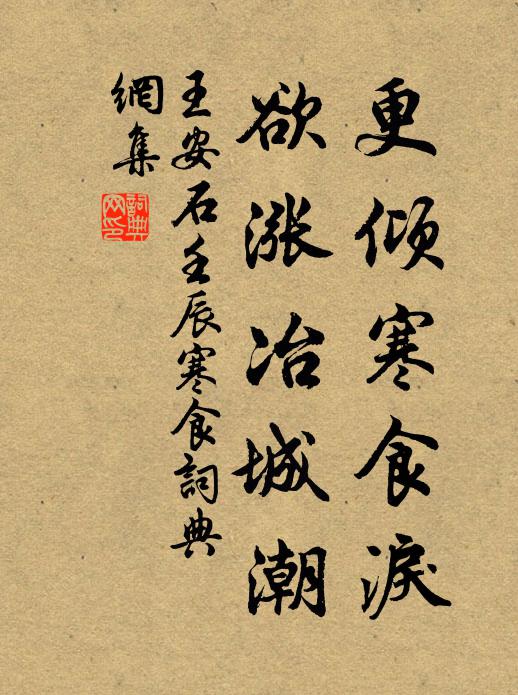 更傾寒食淚
欲漲冶城潮
王安石壬辰寒食詞典
網集
詞典
网印